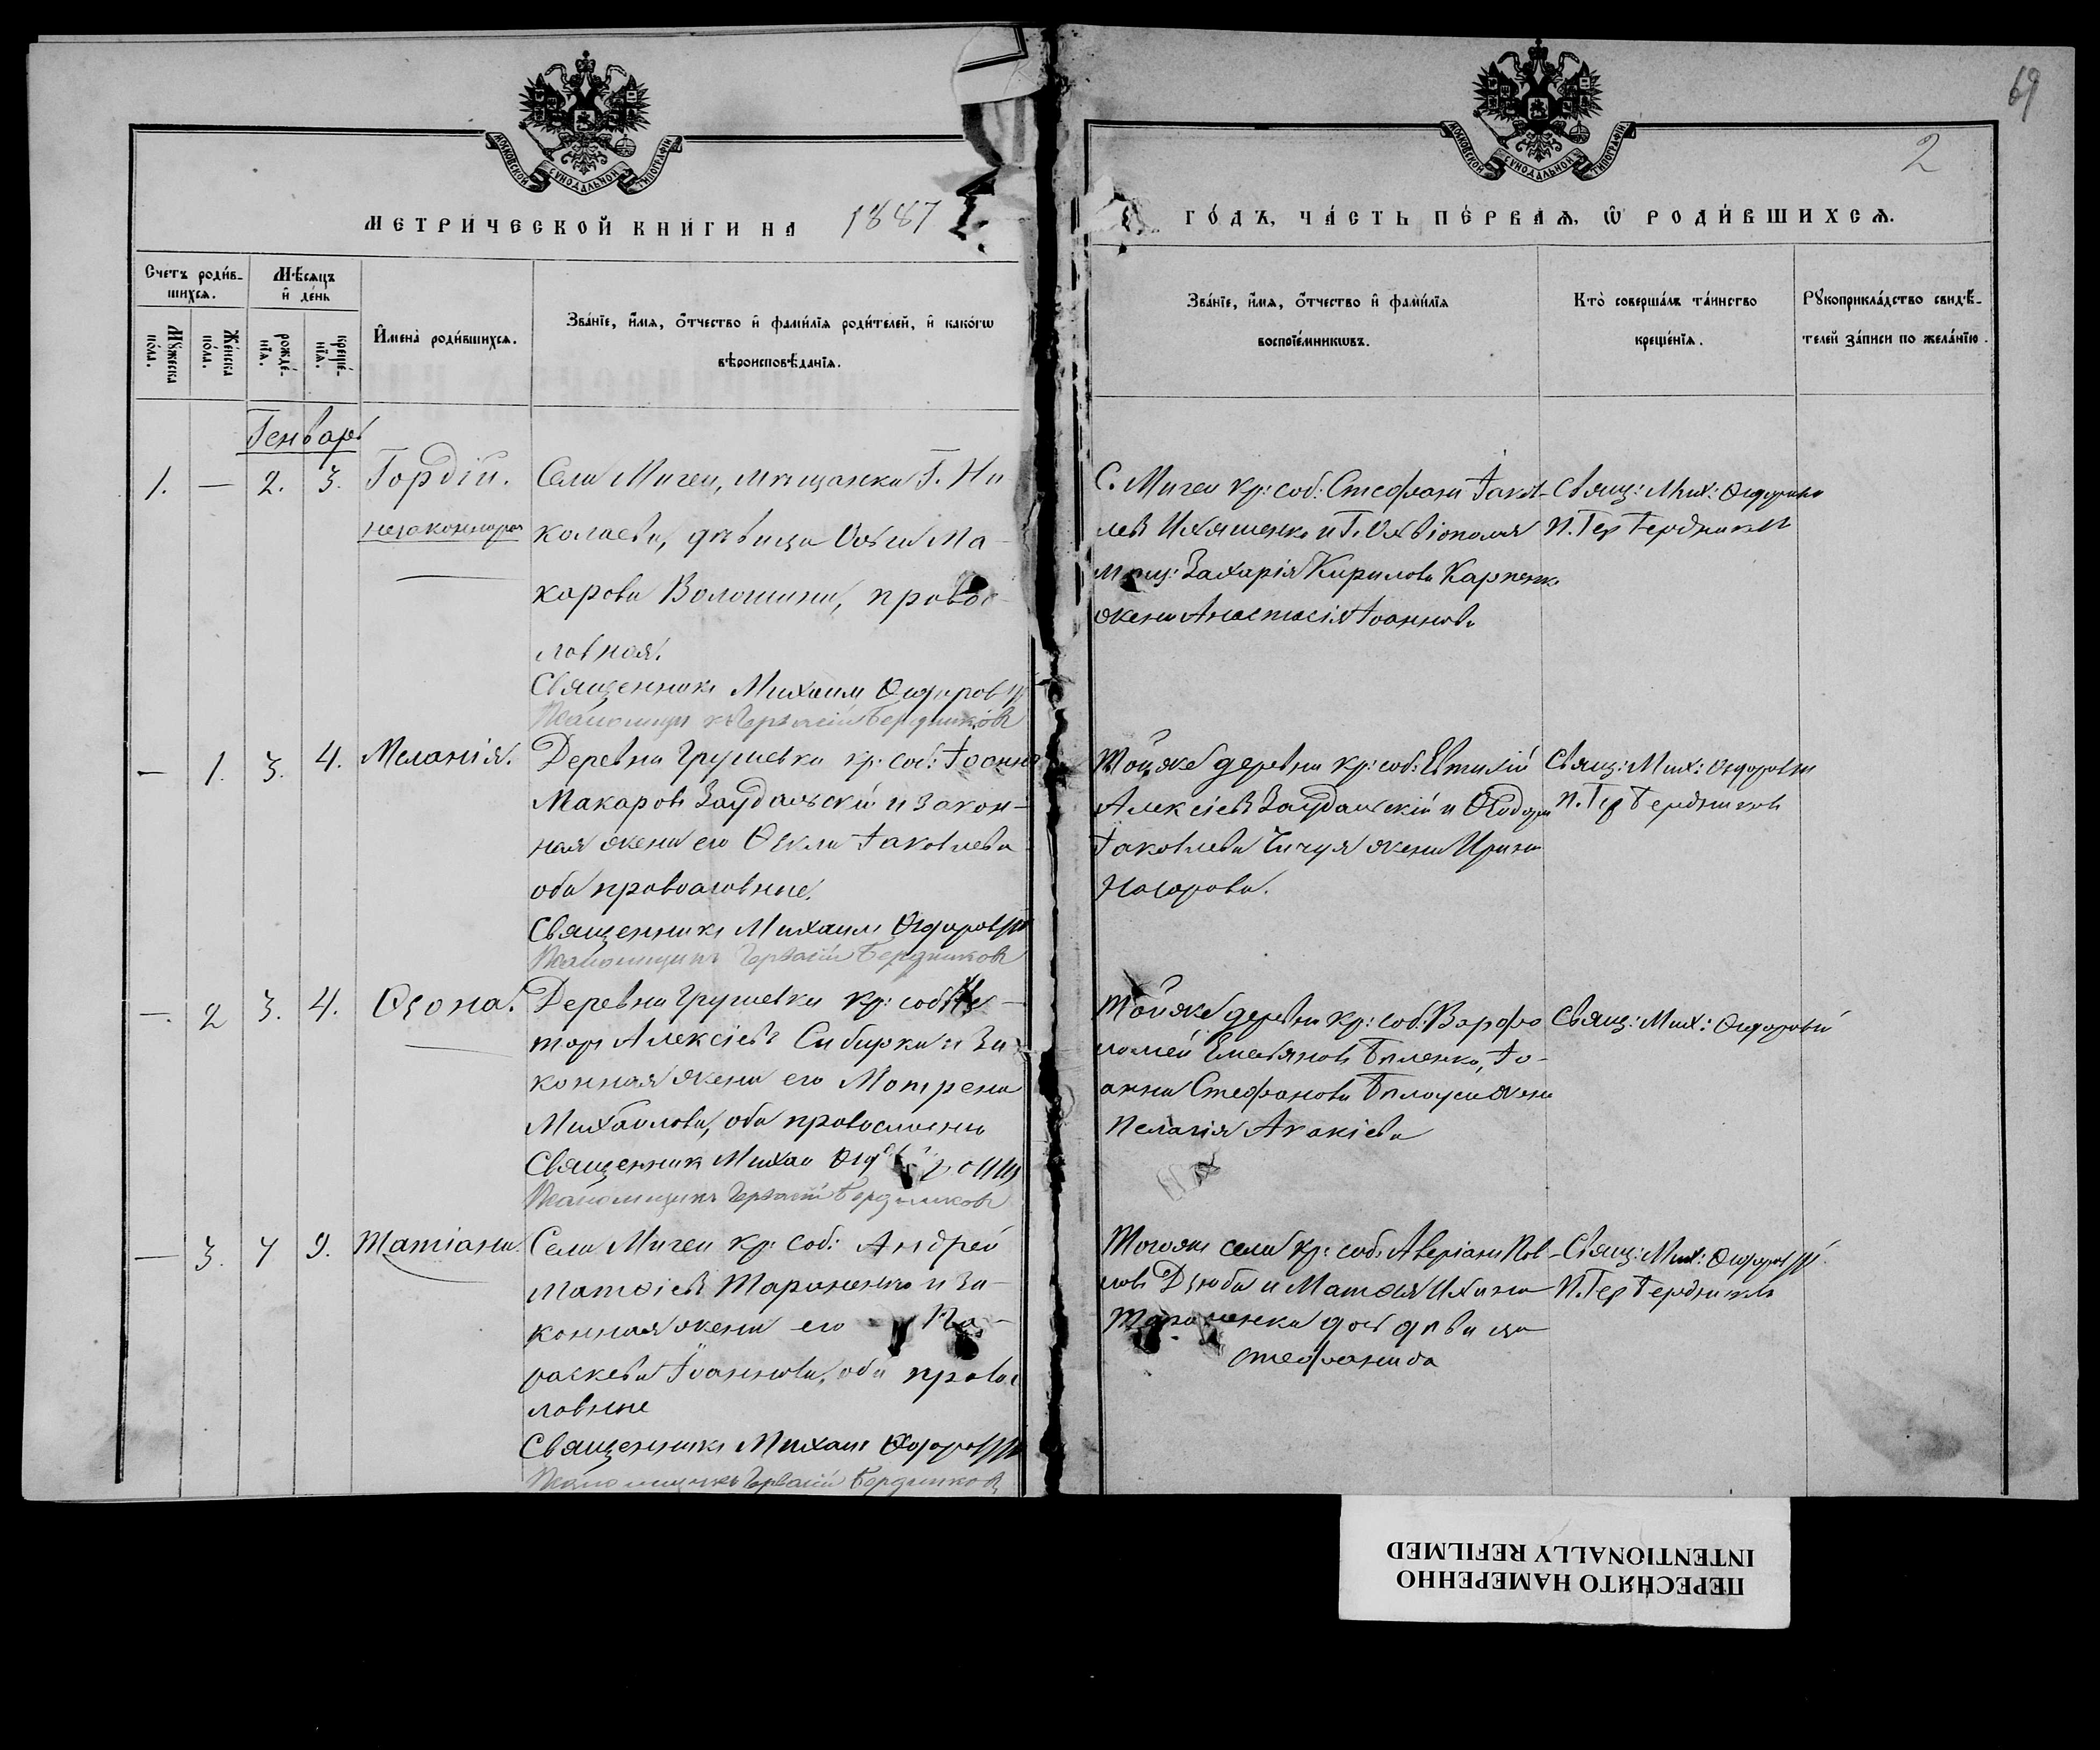 69
2
МОСКОВСКОЙ СѴНОДАЛЬНОЙ ТИПОГРАФІИ
МОСКОВСКОЙ СѴНОДАЛЬНОЙ ТИПОГРАФІИ
МЕТРИЧЕСКОЙ КНИГИ НА 1887
ГО́ДЪ, ЧА́СТЬ ПЕ́РВАѦ, Ѿ РОДИ́ВШИХСѦ.
Счетъ роди́в-
шихсѧ.
Мꙋжеска по́ла.
Же́нска по́ла.
Мѣ́сѧцъ
и҆ де́нь
рожде́-
нїѧ.
креще́-
нїѧ.
И҆мена̀ роди́вшихсѧ.
Зва́нїе, и҆́мѧ, ѻ҆́тчество и҆ фами́лїѧ роди́телей, и҆ како́гѡ
вѣроисповѣ́данїѧ.
Зва́нїе, и҆́мѧ, ѻ҆́тчество и҆ фами́лїѧ
воспрїе́мникѡвъ.
Кто̀ соверша́лъ та́инство
креще́нїѧ.
Рꙋкоприкла́дство свидѣ́-
телей за́писи по жела́нїю.
Генварь
1. — 2. 3. Гордій.
незаконнорож
Села Мигеи, мѣщанка Г. Ни
колаева, дѣвица Софiя Ма-
карова Волошина, правос-
лавная.
Священникъ Михаилъ
Псаломщикъ Гервасій Бердниковъ
С. Мигеи кр: соб: Стефанъ Іаков-
левъ Ильяшенко и Г. Ольвіополя
мѣщ: Захарія Кирилова Карпенк
жена Анастасія Іоаннова
Свящ: Мих:
П. Гер Бердников
— 1. 3. 4. Меланія.
Деревни Грушевки кр: соб: Іоаннъ
Макаровъ Заудальскій и закон-
ная жена его Ѳекла Іаковлева
оба православные.
Священникъ Михаилъ
Псаломщикъ Гервасій Бердниковъ
Той же деревни кр: соб: Евтихій
Алексіевъ Заудальскій и Ѳеодора
Іаковлева Чичуя жена Ирина
Назарова.
Свящ: Мих:
П. Гер Бердников
— 2 3. 4. Ѳеона.
Деревни Грушевки кр: соб: Нес-
торъ Алексіевъ Сибирка и за-
конная жена его Мотрена
Михайлова, оба православны
Священникъ Михаи
Псаломщикъ Гервасій Бердниковъ
Той же деревни кр: соб: Варфо
ломей Емельяновъ Биленко, Іо-
анна Стефанова Билоуса жена
Пелагія Акакіева
Свящ: Мих:
— 3. 7 9. Татіана.
Села Мигеи кр: соб: Андрей
Матѳіевъ Тараненко и за-
конная жена его Па-
раскева Іоаннова, оба правос
лавные
Священникъ Михаилъ
Псаломщикъ Гервасій Бердниковъ
Тогоже села кр: соб: Аверіанъ Пав-
ловъ Дзюба и Матѳія
Тараненка доч дѣвица
Стефанида
Свящ: Мих:
П. Гер Бердников
ПЕРЕСНЯТО НАМЕРЕННО
INTENTIONALLY REFILMED